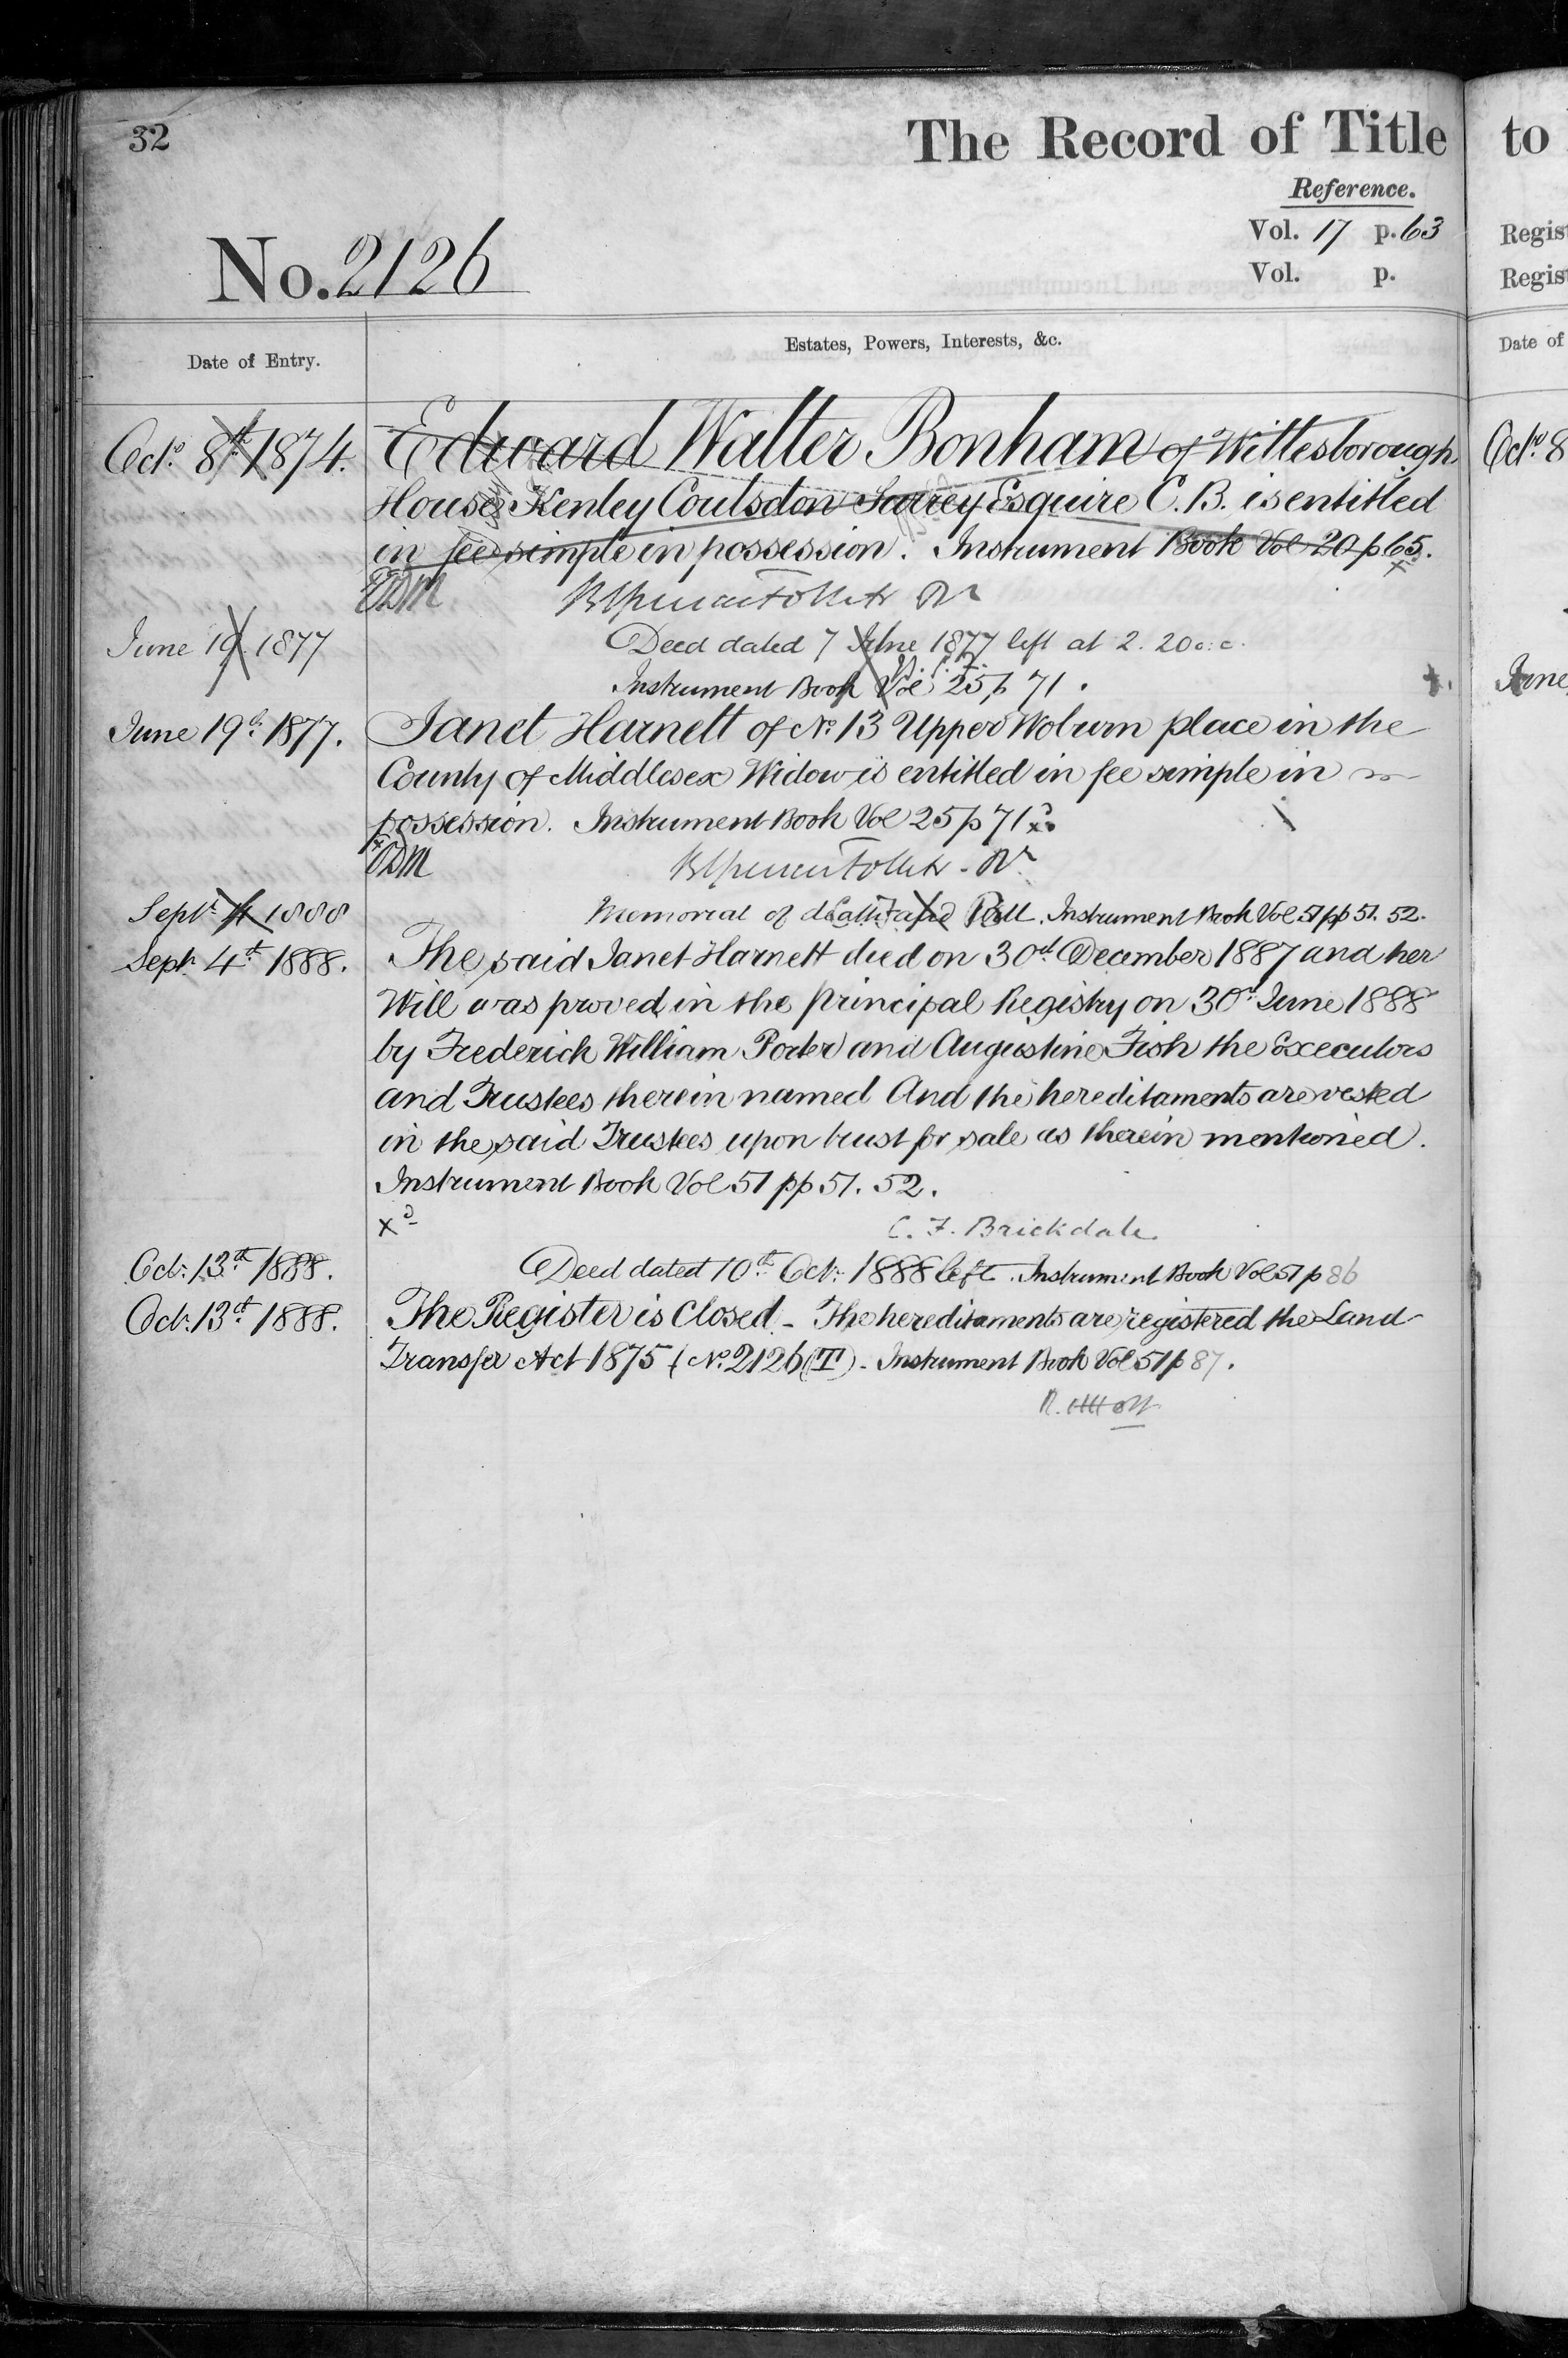 32
The Record of Title
to
Reference.
Vol. 17 p. 63
Regist
No. 2126
Vol. p.
Regist
Date of Entry.
Estates, Powers, Interests, &c.
Date of
Octr 8th 1874.
Edward Walter Bonham of Wittesborough
Octr 8
House Kenley Coulsdon Surrey Esquire C.B. is entitled
in fee simple in possession. Instrument Book Vol 20 p 65.
June 19 1877
Deed dated 7 June 1877 left at 2. 20
Instrument Book Vol 25 p 71.
June
June 19th 1877.
Janet Harnett of No. 13 Upper Woburn place in the
County of Middlesex Widow is entitled in fee simple in
possession. Instrument Book Vol 25 p 71
Septr 4 1888
Memorial of death and Will. Instrument Book Vol 51 pp 51. 52.
Septr 4th 1888.
The said Janet Harnett died on 30th December 1887 and her
Will was proved in the Principal Registry on 30th June 1888
by Frederick William Porter and Augustine Fish the Executors
and Trustees therein named And the hereditaments are vested
in the said Trustees upon trust for sale as therein mentioned.
Instrument Book Vol 51 pp 51. 52.
C. F. Brickdale
Octr 13th 1888.
Deed dated 10th Octr 1888 left. Instrument Book Vol 51 p 86
Octr 13th 1888.
The Register is Closed - The hereditaments are registered the Land
Transfer Act 1875 (No. 2126 (T) - Instrument Book Vol 51 p 87.